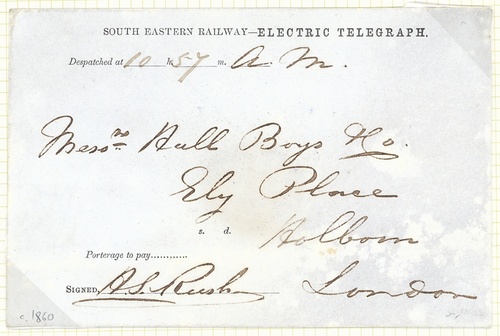 SOUTH EASTERN RAILWAY—ELECTRIC TELEGRAPH.
Despatched at 10 h. 57 m. A.M.
Messrs Hull Boys
Ely Place
s. d. Holborn
Porterage to pay............
SIGNED, A S. Rush London
c. 1860